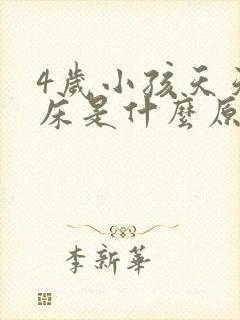 4歲小孩天天
床是什麼原
李新華